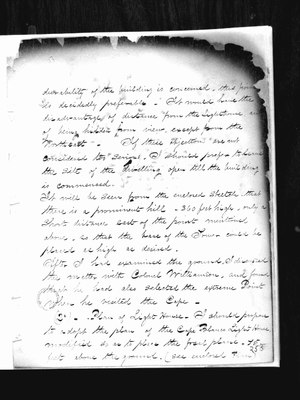 durability of the building is concerned, this point
is decidedly preferable. It would have the
disadvantage of distance from the Lighthouse, and
of being hidden from view, except from the
Northeast. If these objections are not
considered too serious, I should prefer to leave
the site of the dwelling open till the building
is commenced.
It will be seen from the enclosed sketch that
there is a prominent hill - 360 feet high, only a
short distance east of the point mentioned
above, so that the base of the Tower could be
placed as high as desired.
After I had examined the ground, I discussed
the matter with Colonel Williamson, and found
that he had also selected the extreme Point
when he visited the Cape -
Plan of Light House. I should propose
to adopt the plan of the Cape Blanco Light House
modified so as to place the focal plane
feet above the ground. (see enclosed